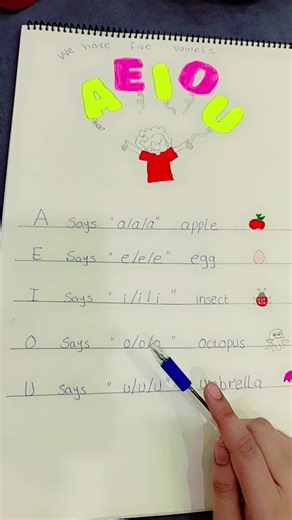 we have five vowels
A E I O U
A says "a/a/a" apple
E says "e/e/e" egg
I says "i/i/i" insect
O says "o/o/o" octopus
U says "u/u/u" umbrella